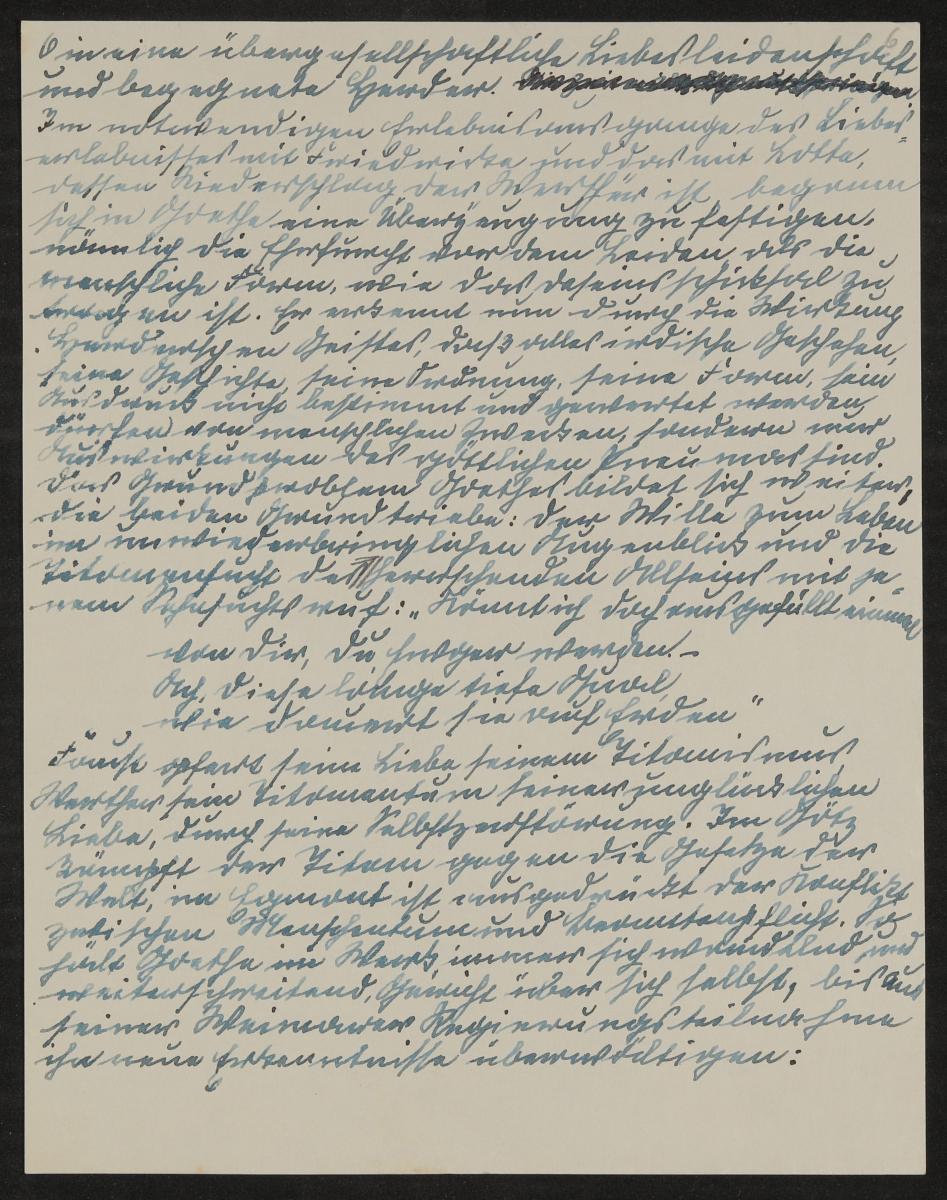 6 in eine übergesellschaftliche Liebesleidenschaft 6
und begegnete Herder.
Im notwendigen Erlebnisausgange des Liebes-
erlebnisses mit Friedericke und das mit Lotte,
dessen Niederschlag der Werther ist, begann
sich in Goethe eine Überzeugung zu festigen,
nämlich die Ehrfurcht vor dem Leiden, als die
menschliche Form, wie das Daseinsschicksal zu
tragen ist. Er erkennt nun durch die Wirkung
Herderschen Geistes, dass alles irdische Geschehen,
seine Geschichte, seine Ordnung, seine Form, sein
Ausdruck nicht bestimmt und gewertet werden
dürfen von menschlichen Zwecken, sondern nur
Auswirkungen des göttlichen Pneumas sind.
Das Grundproblem Goethes bildet sich weiter,
die beiden Grundtriebe: der Wille zum Leben
im unwiederbringlichen Augenblick und die
Titanensucht des herrschenden Allseins mit je-
nem Sehnsuchtsruf: „Könnt ich doch ausgefüllt einmal
von dir, du Ewger werden. –
Ach, diese lange tiefe Qual,
wie dauert sie auf Erden"
Faust opfert seine Liebe seinem Titanismus,
Werther sein Titanentum seiner unglücklichen
Liebe, durch seine Selbstzerstörung. Im Götz
kämpft der Titan gegen die Gesetze der
Welt, im Egmont ist ausgedrückt der Konflikt
zwischen Menschentum und Beamtenpflicht. So
hält Goethe im Werk immer sich wandelnd und
weiterschreitend, Gericht über sich selbst, bis aus
seiner Weimarer Regierungsteilnahme
ihn neue Erkenntnisse überwältigen: